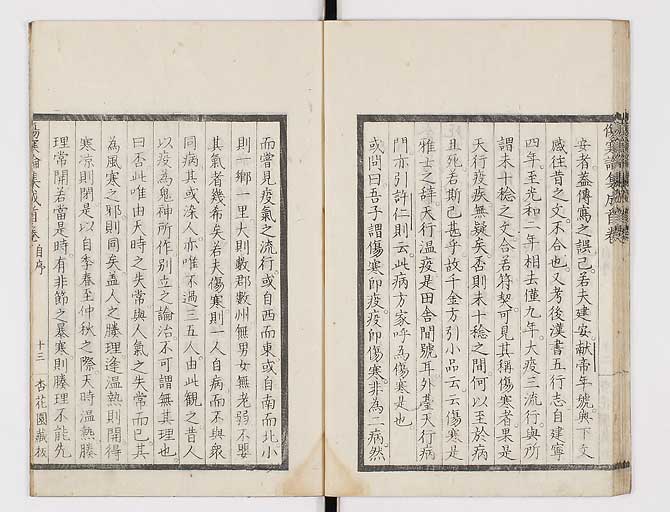 傷寒論集成首卷
安者蓋傳寫之誤已若夫建安献帝年號與下文
感往昔之文不合也又考後漢書五行志自建寧
四年至光和二年相去僅九年大疫三流行與所
謂未十稔之文合若符契可見其稱傷寒者果是
天行疫疾無疑矣否則未十稔之間何以至於病
且死若斯已甚乎故千金方引小品云云傷寒是
雅士之辭天行溫疫是田舍間號耳外臺天行病
門亦引許仁則云此病方家呼為傷寒是也
或問曰吾子謂傷寒即疫疫即傷寒非為二病然
而嘗見疫氣之流行或自西而東或自南而北小
則一鄉一里大則數郡數州無男女無老弱不嬰
其氣者幾希矣若夫傷寒則一人自病而不與衆
同病其或染人亦唯不過三五人由此觀之昔人
以疫為鬼神所作別立之論治不可謂無其理也
曰否此唯由天時之失常與人氣之失常而已其
為風寒之邪則同矣蓋人之腠理逢溫熱則開得
寒涼則閉是以自季春至仲秋之際天時溫熱腠
理常開若當是時有非節之暴寒則腠理不能先
傷寒論集成首卷 自序 十三 杏花園藏板